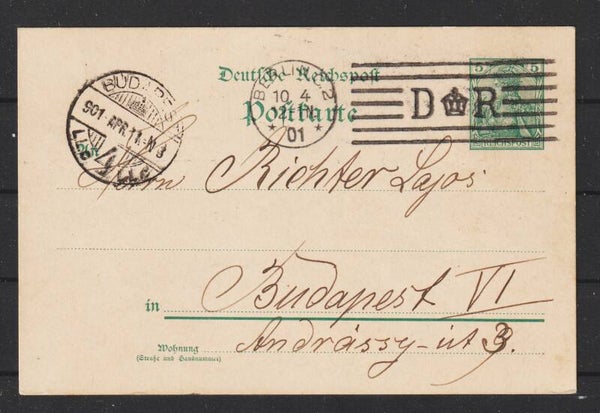 Deutsche Reichspost
Postkarte
5 5
REICHSPOST
BERLIN
10 4
01
D R
BUDAPEST
901 APR. 11. N 3
An
Herrn Richter Lajos
in Budapest VI
Andrássy-út 3.
Wohnung
(Straße und Hausnummer)